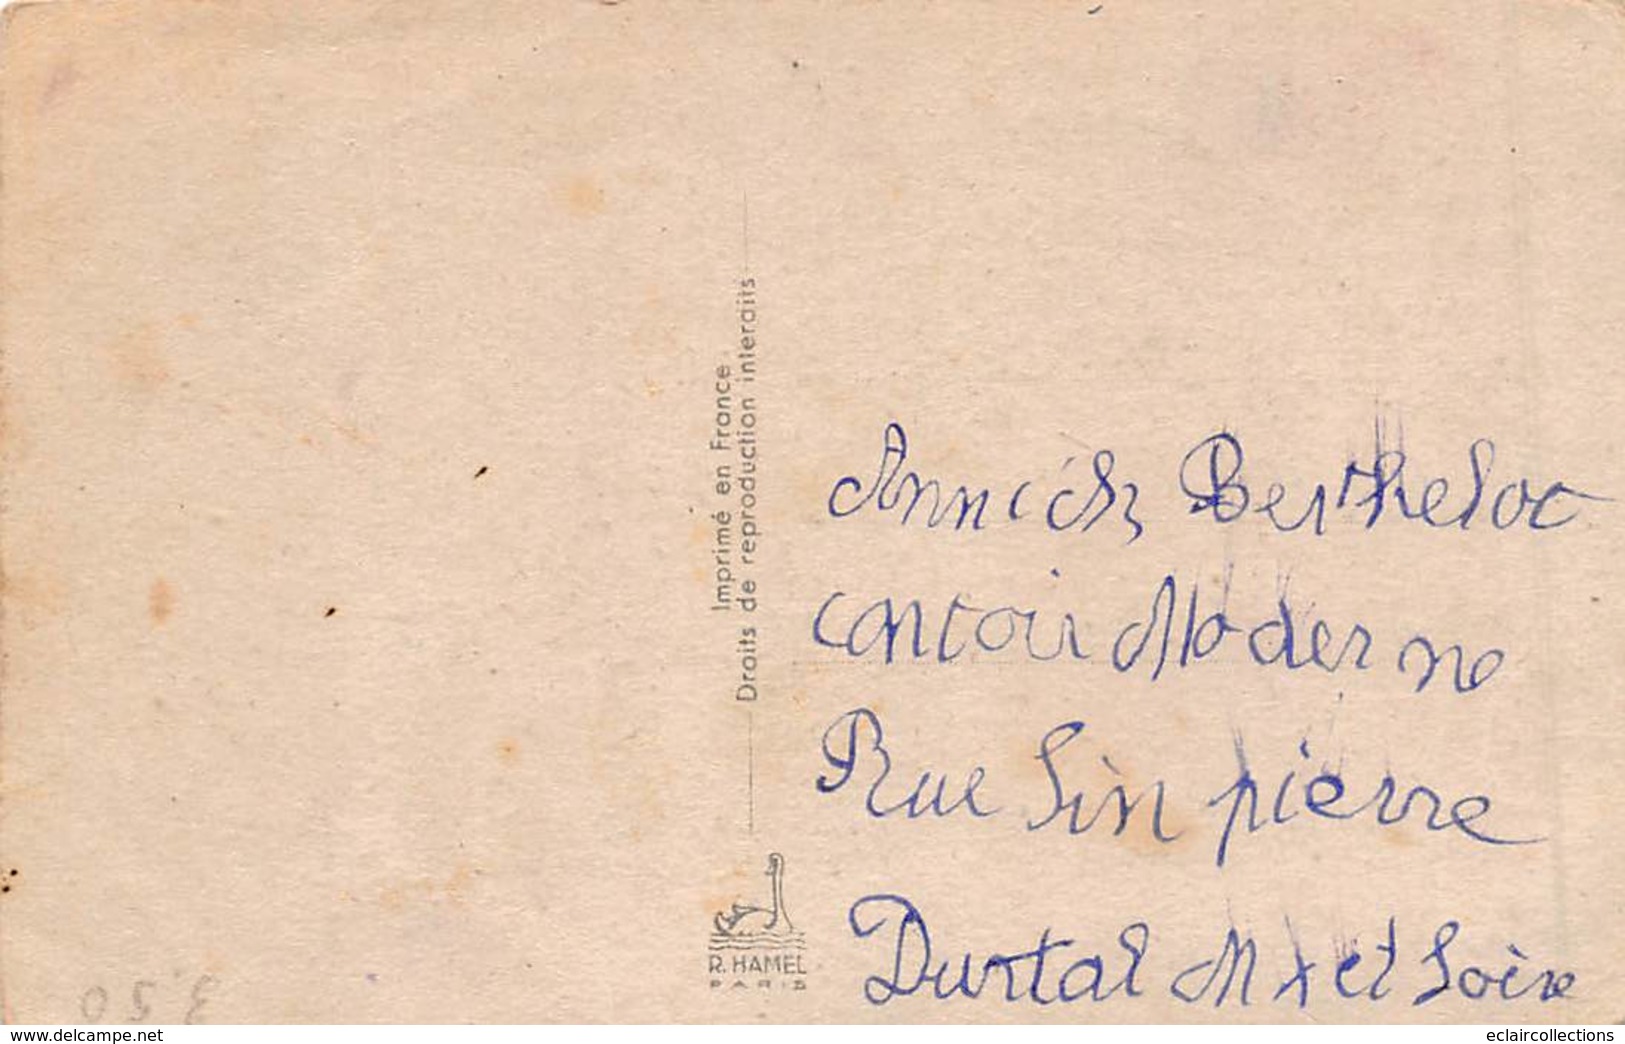 Imprimé en France
Droits de reproduction interdits
R. HAMEL
PARIS
Annick Berthelot
contoir Moderne
Rue Sin pierre
Durtal M et Loire
3 50
delcampe.net
eclaircollections